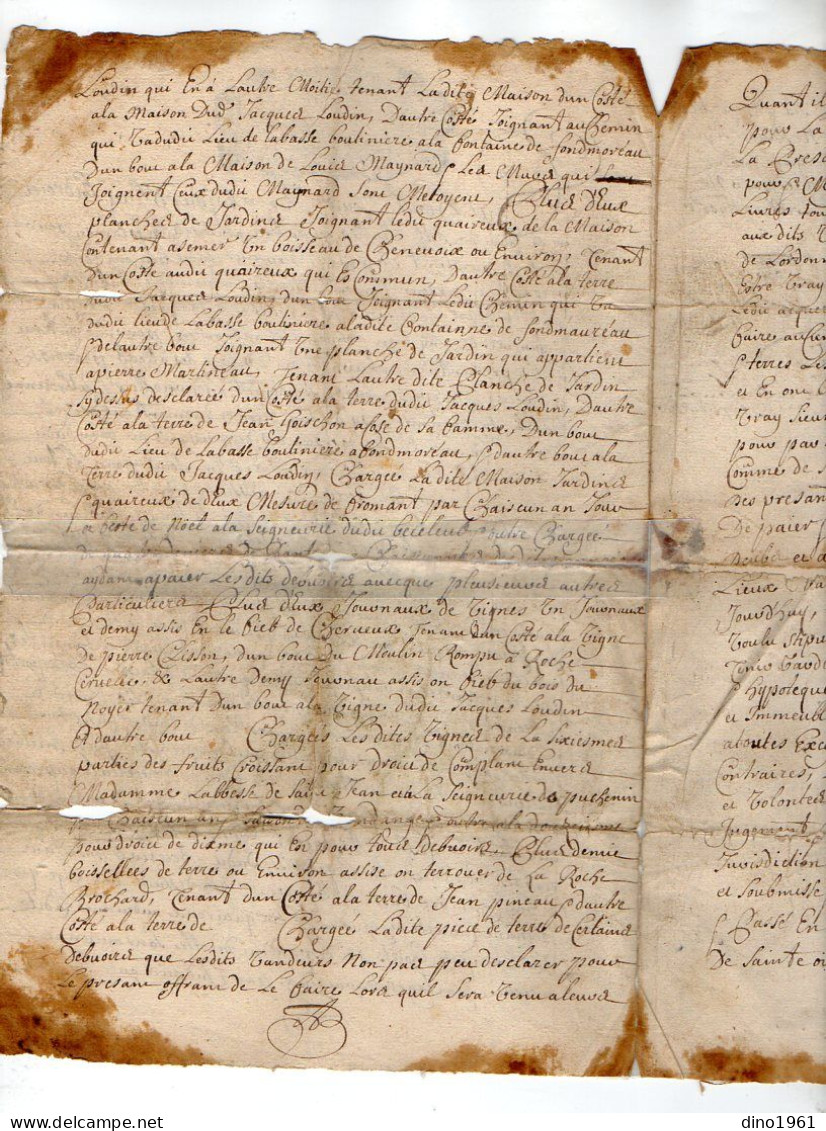 Loudin qui En á Lautre Moitie tenant Ladite Maison dun Costé
ala Maison Dud Jacques Loudin, Dautre Costé Joignant au Chemin
qui Va dudu Lieu de labasse bouliniere ala fontaine de fondmoreau
Dun bout ala Maison de Louis Maynard & Les Murs qui
Joignent Ceux dudu Maynard Sont Metoyent, Plus D'Eux
planches de Jardins Joignant ledu quaireux de la Maison
Contenant asemer Vn boisseau de Chenevoix ou Environ, Tenant
dun Costé audu quaireux qui Es Commun, Dautre Costé ala terre
dudu Jacques Loudin, dun bout Joignant Ledu Chemin qui Va
dudu lieu de Labasse bouliniere aladite fontainne de fondmaureau
& delautre bout Joignant Vne planche de Jardin qui appartient
apierre Martineau, Tenant Lautre dite Planche de Jardin
Sydessus desclareé dun Costé ala terre dudu Jacques Loudin, Dautre
Costé ala terre de Jean acose de sa famme, Dun bout
dudu Lieu de Labasse bouliniere afondmoreau, & dautre bout ala
Terre dudu Jacques Loudin, Chargeé Ladite Maison Jardins
& quaireux de deux Mesure de fromant par Chaiscun an Jour
& feste de Noël ala Seigneurie dudu outre Chargeé
aydant apaier Lesdits debvoirs avecque plusieures autres
Particuliers Plus d'Eux Journaux de Vignes Vn Journaux
et demy assis En le fieb de Cherveux Tenant dun Costé ala Vigne
de pierre Clisson, dun bout du Moulin Rompu a Roche
Cervelle, & Lautre demy Journau assis on fieb du bois du
Noyer tenant Dun bout ala Vigne dudu Jacques Loudin
& dautre bout Chargeés Lesdites Vignes de La Sixiesmes
parties des fruits Croissant pour droict de Complant Envers
Madamme Labbesse de Saint Jean et ala Seigneurie de puchenin
par Chaiscun an Saison de Vandange
pour droict de dixme qui En pour tous debvoirs Plus demie
boisselleés de terre ou Environ assise on terrouer de La Roche
Brochard, Tenant dun Costé ala terre de Jean pineau & dautre
Costé ala terre de Chargeé Ladite piece de terre de Certains
Debvoirs que Lesdits Vandeurs Non pas peu desclarer pour
Le presant offrant de Le faire Lors quil Sera Venu aleurs
Quant il
pour La
La Pres
pour
Livres
aux dits
de Lordon
Estre Vray
Ledu acque
faire aucun
& terres Les
et En ont
Vray Sieur
pour
Comme de
Des presan
De paier
et a
Lieux
Jourd'huy,
Voulu Stipu
& hypoteque
et Immeubl
atoutes Exc
Contraires,
et Volontes
Jugement
Jurisdiction
et Soubmisse
& Passé En
De Sainte
dino1961